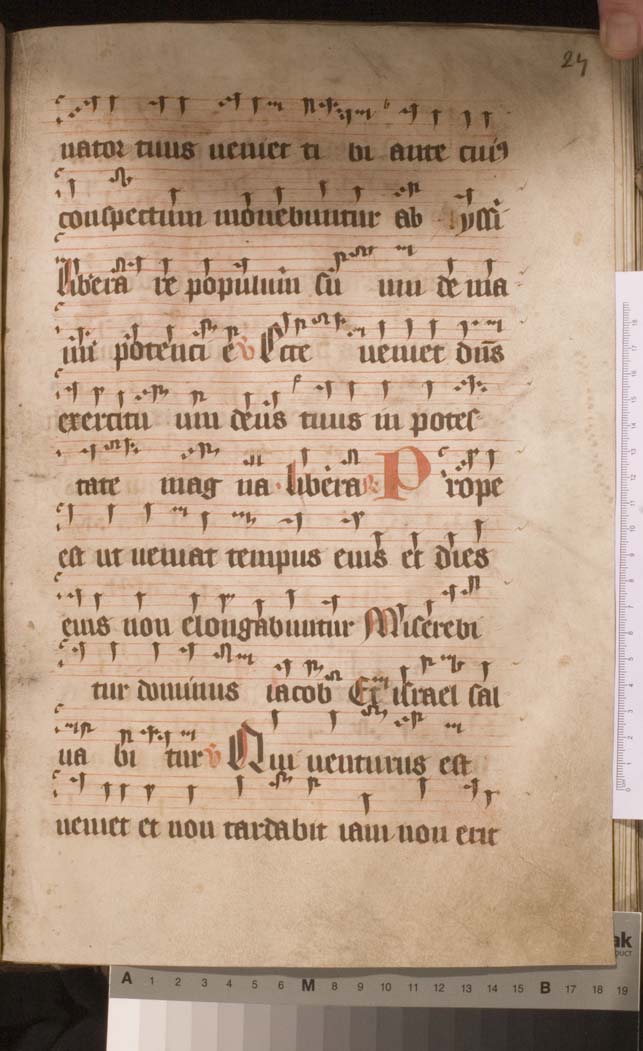 24
uator tuus ueniet ti bi ante cuiꝰ
conspectum mouebuntur ab yssi
libera re populum su um de ma
nu potenci e v Ecce ueniet dn̄s
exercitu um deus tuus in potes
tate mag na libera Prope
est ut ueniat tempus eius et dies
eius non elongabuntur Miserebi
tur dominus iacob Et israel sal
ua bi tur v Qui uenturus est
ueniet et non tardabit iam non erit